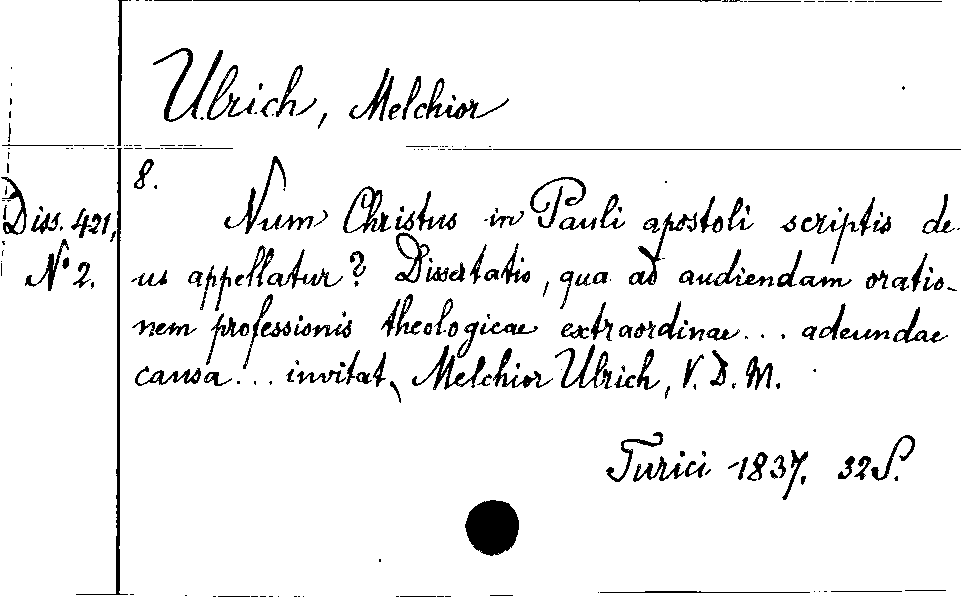 Ulrich, Melchior
8.
Diss. 421,
N° 2.
Num Christus in Pauli apostoli scriptis de-
us appellatur? Dissertatio, qua ad audiendam oratio-
nem professionis theologicae extraordinae... adeundae
causa... invitat, Melchior Ulrich, V. D. M.
Turici 1837. 32 S.